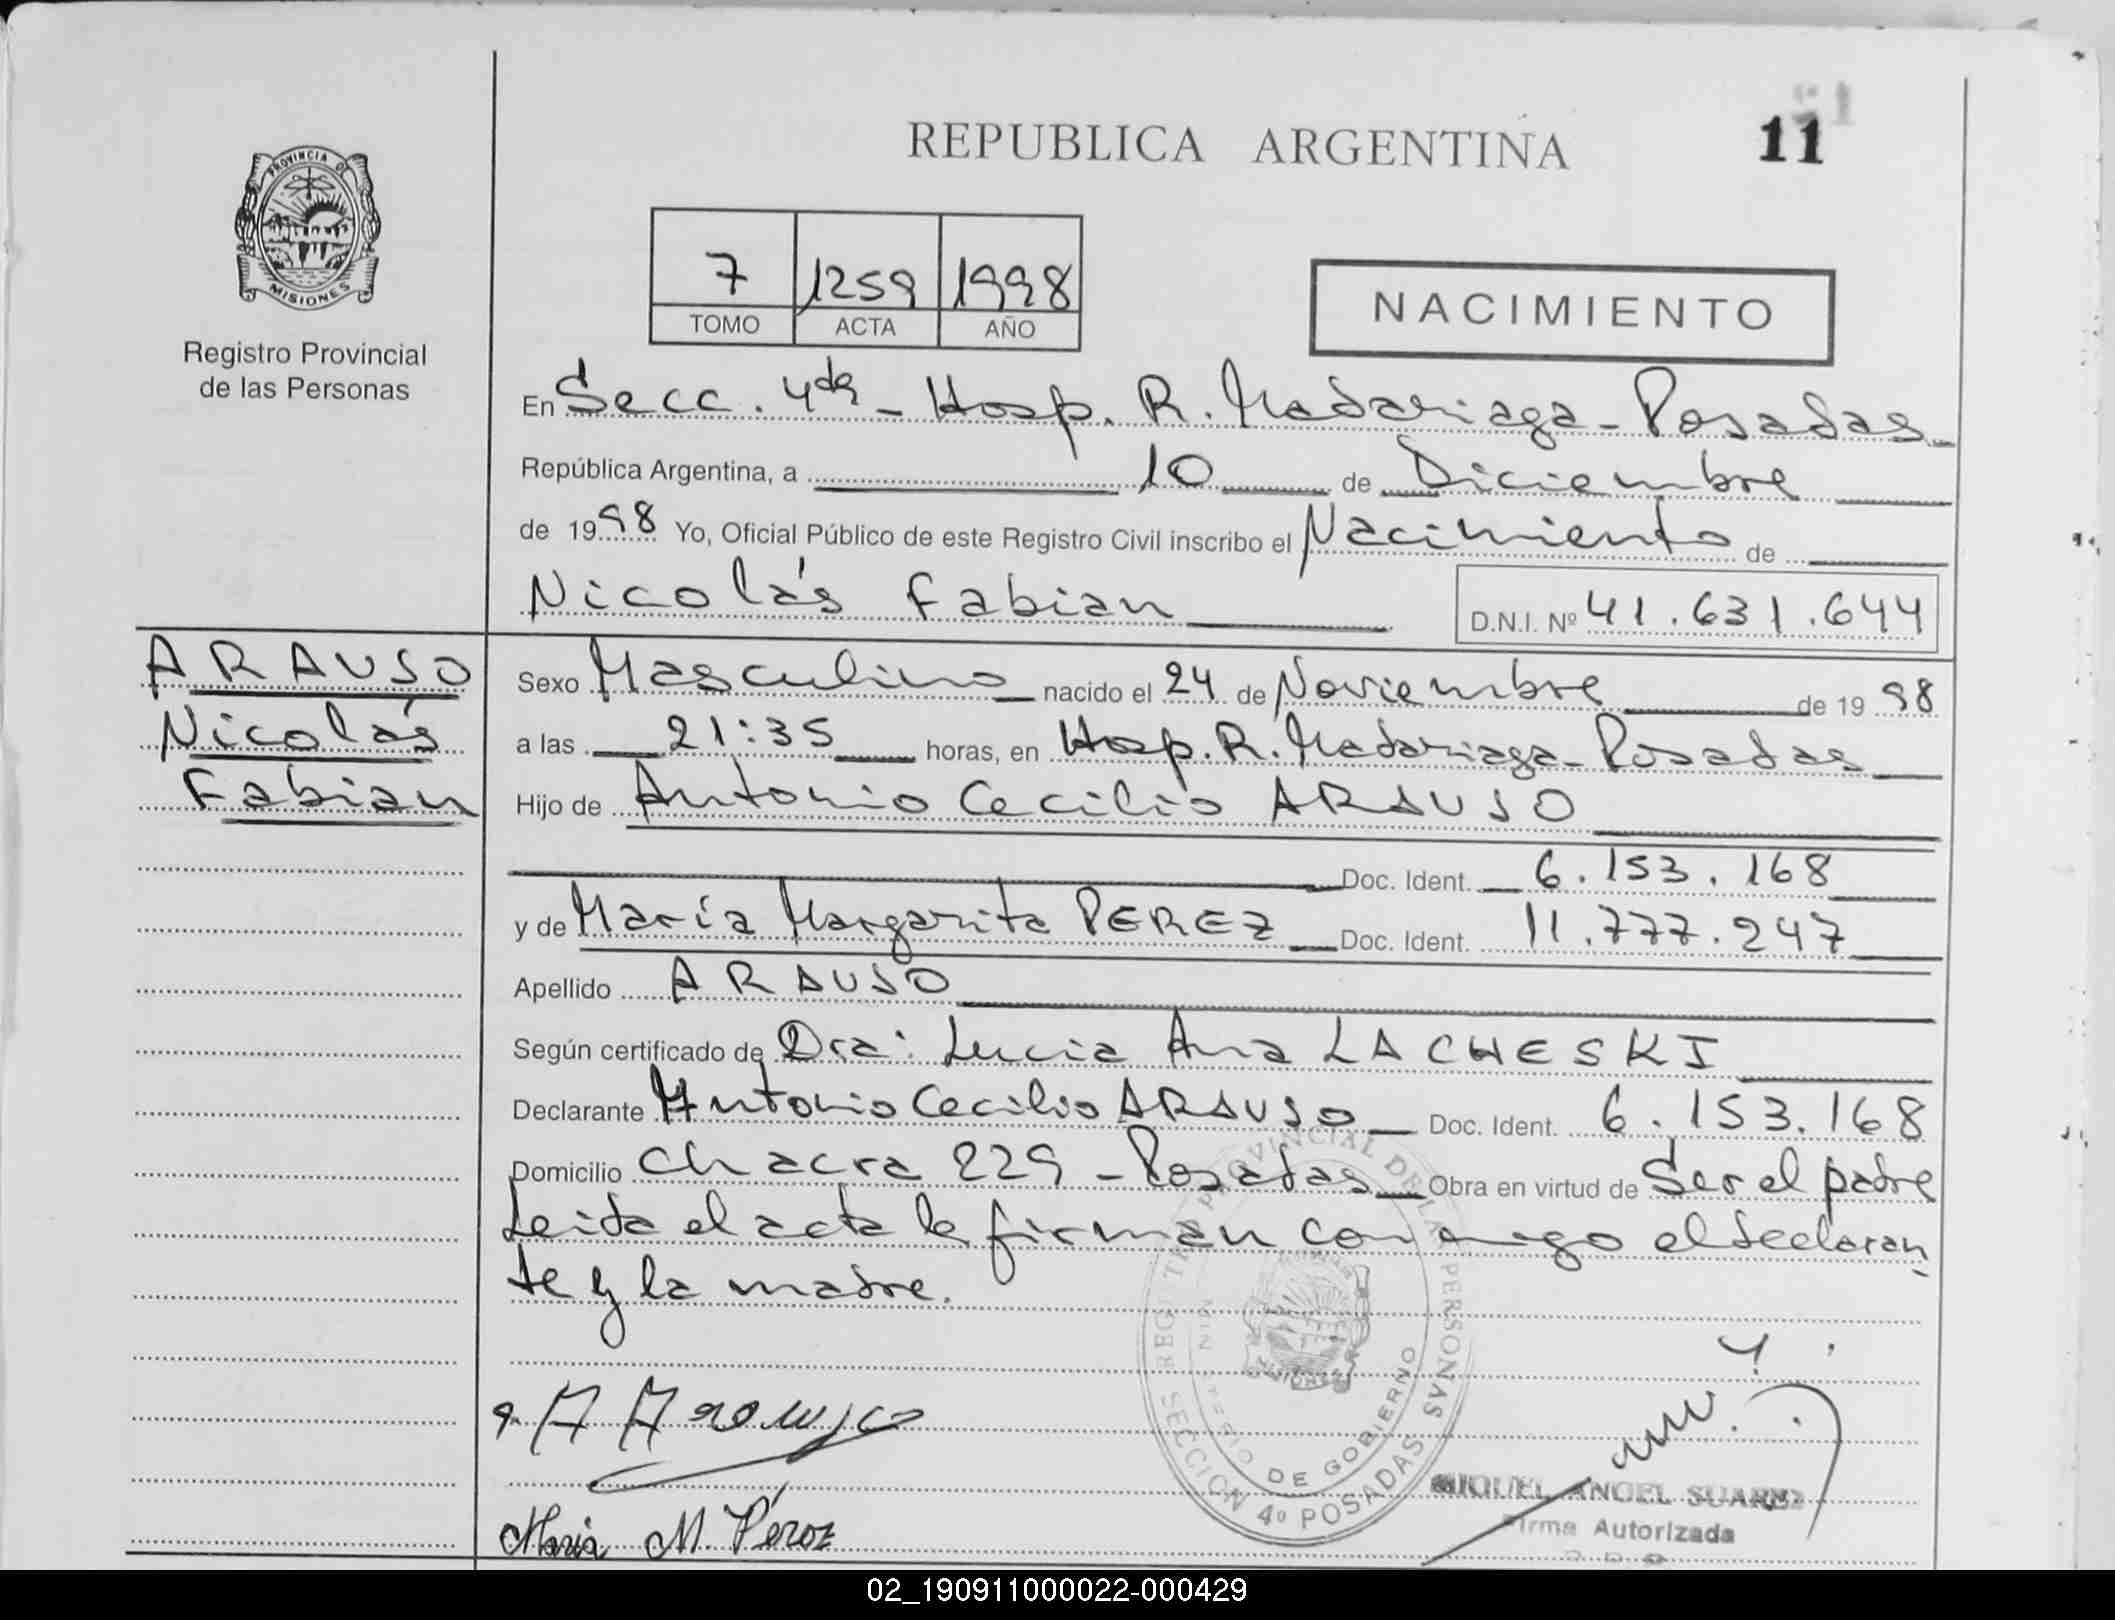 11
REPUBLICA ARGENTINA
PROVINCIA DE
MISIONES
Registro Provincial
de las Personas
7 1259 1998
TOMO ACTA AÑO
NACIMIENTO
En Secc. 4ta - Hosp. R. Madariaga - Posadas
República Argentina, a 10 de Diciembre
de 1998 Yo, Oficial Público de este Registro Civil inscribo el Nacimiento de
Nicolás Fabian D.N.I. Nº 41.631.644
ARAUSO
Nicolás
Fabian
Sexo Masculino nacido el 24 de Noviembre de 1998
a las 21:35 horas, en Hosp. R. Madariaga - Posadas
Hijo de Antonio Cecilio ARAUSO
Doc. Ident. 6.153.168
y de María Margarita PEREZ Doc. Ident. 11.777.247
Apellido ARAUSO
Según certificado de Dra. Lucia Ana LACHESKI
Declarante Antonio Cecilio ARAUSO Doc. Ident. 6.153.168
Domicilio Chacra 229 - Posadas Obra en virtud de Ser el padre
Leida el acta la firman conmigo el declaran
te y la madre.
REGISTRO PROVINCIAL DE LAS PERSONAS
DE GOBIERNO
SECCION 4º POSADAS
MIGUEL ANGEL SUAREZ
Firma Autorizada
María M. Pérez
02_190911000022-000429